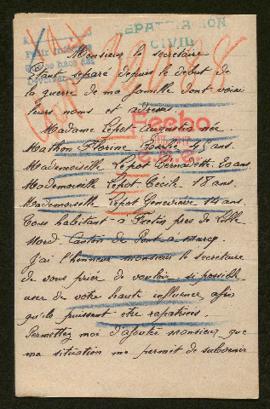 REPATRIATION
CIVIL
Monsieur le secretaire
Etant separé depuis le debut de
la guerre de ma famille dont voici
leurs noms et adresse.
Madame Lepot Augustine née
Mathon Florine 4 ans.
Mademoiselle Lepot Bernadette 20 ans
Mademoiselle Lepot Cecile 18 ans.
Mademoiselle Lepot Geneviève 14 ans.
Tous habitant a près de Lille
Nord. Canton de Pont à Marcq.
J'ai l'honneur monsieur le secretaire
de vous prier de vouloir si possible
user de votre haute influence afin
qu'ils puissent etre rapatriés.
Permettez moi d'ajouté monsieur que
ma situation me permet de subvenir